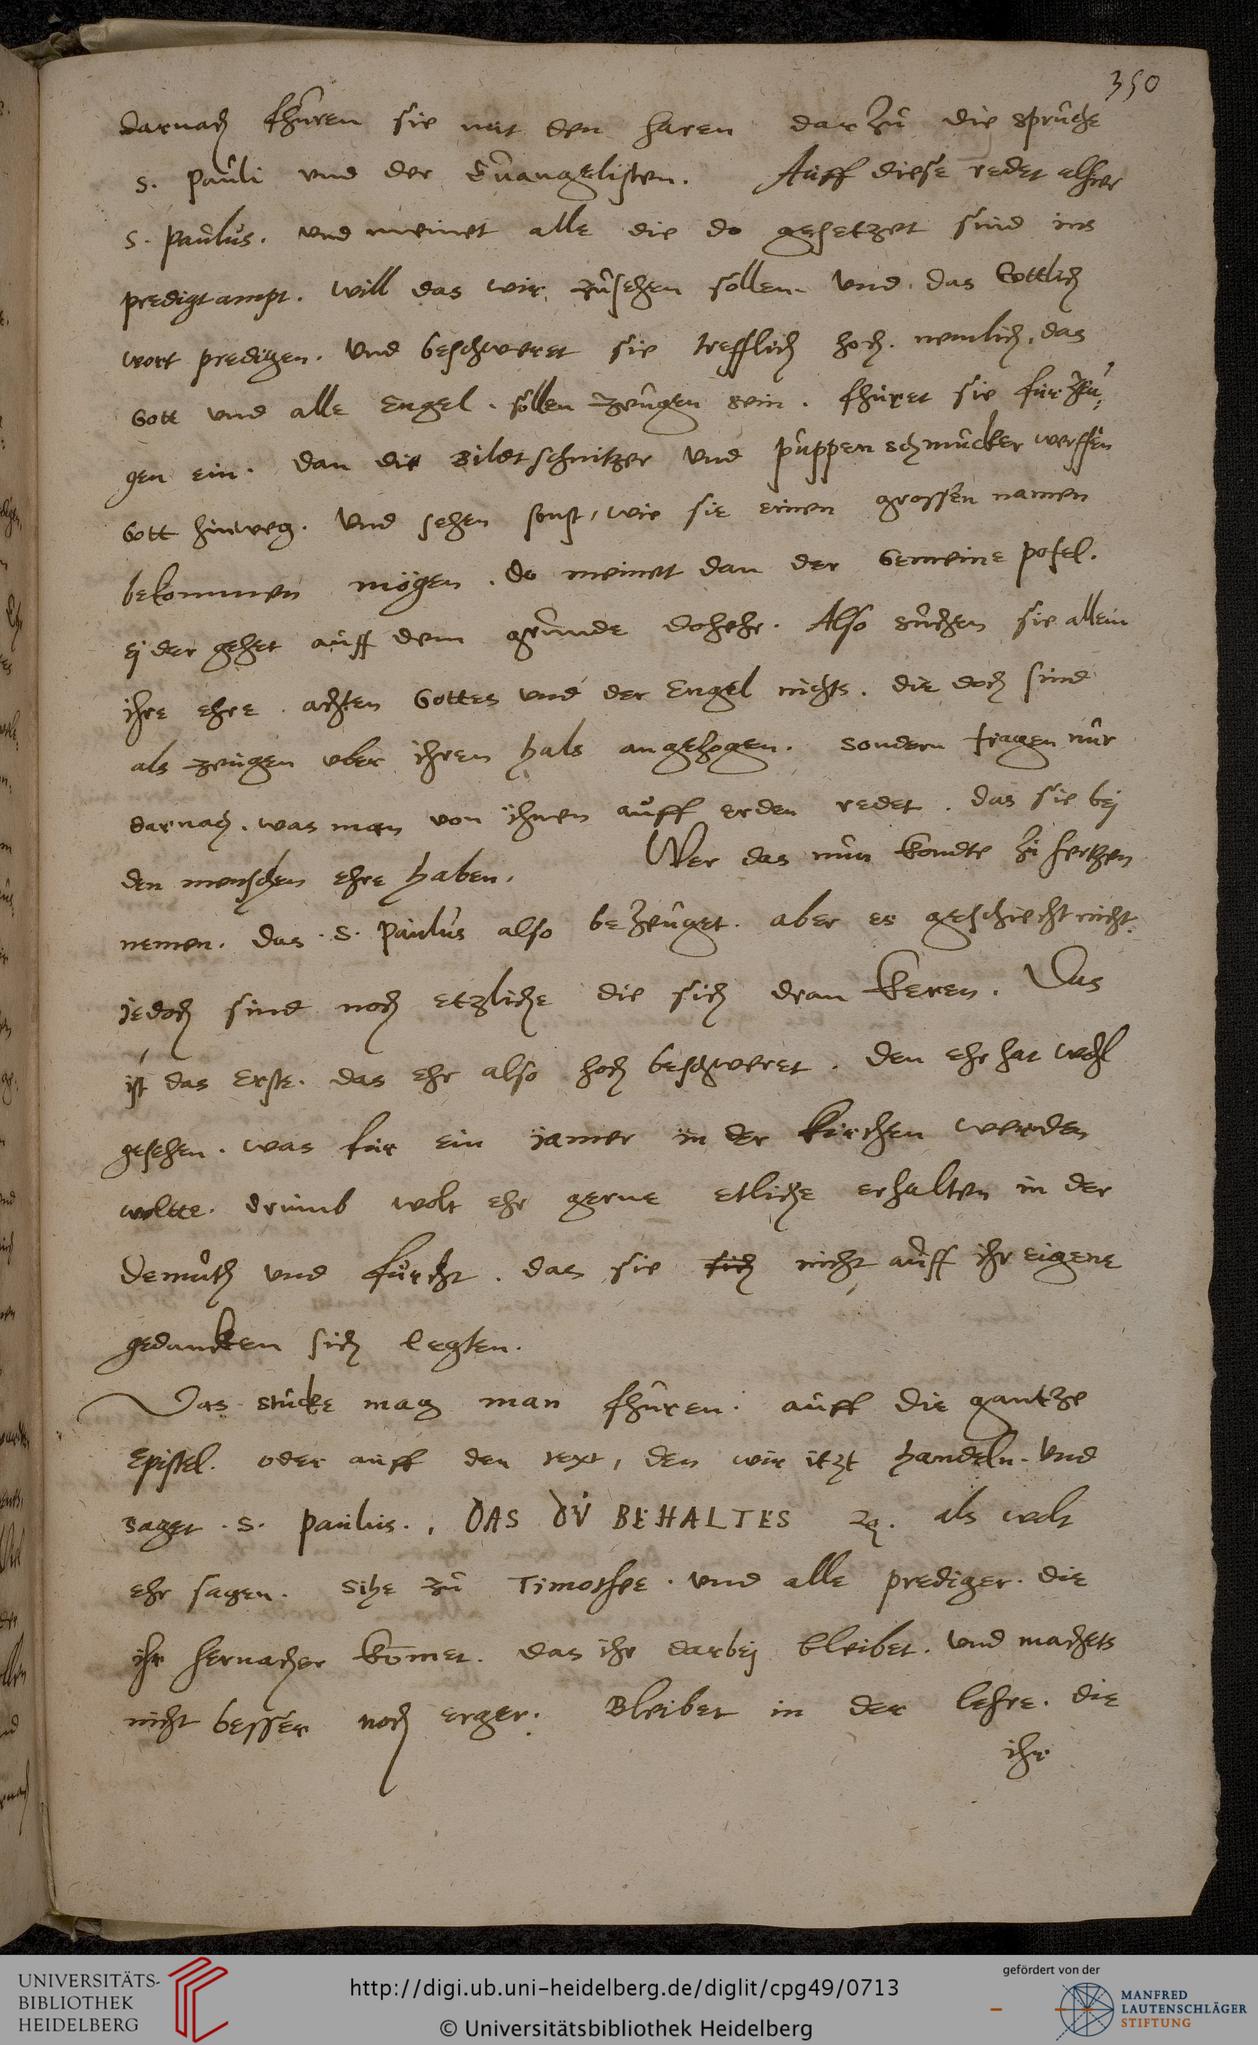 350
darnach fhuren sie mit den haren darzu die spruche
S. Pauli vnd der Euangelisten. Auff diese redet alhier
S. Paulus. vnd meinet alle die do gesetzet sind ins
predigtampt. Will das wir zusehen sollen. Vnd das Gottlich
wort predigen. Vnd beschweret sie trefflich hoch. nemlich, das
Gott vnd alle Engel. sollen zeugen sein. fhuret sie fur zeu-
gen ein. dan die Bildtschnitzer vnd puppenschmucker werffen
Gott hinweg. Vnd sehen sonst, wie sie einen grossen namen
bekommen mögen. do meinet dan der Gemeine pofel.
ej der gehet auff dem grunde dohehr. Also suchen sie allein
ihre ehre. achten Gottes vnd der Engel nichts. die doch sind
als zeugen vber ihren hals angezogen. sondern fragen nur
darnach. was man von ihnen auff erden redet. das sie bej
den menschen ehre haben. Wer das nun kondte zu hertzen
nemen. das S. Paulus also bezeuget. aber es geschiecht nicht.
jedoch sind noch etzliche die sich dran keren. Das
ist das Erste. das ehr also hoch beschweret. den ehr hat wohl
gesehen. was fur ein jamer in der kirchen werden
woltte. drumb wolt ehr gerne etliche erhalten in der
demuth vnd furcht. das sie sich nicht auff ihr eigene
gedancken sich legten.
Das stucke mag man fhuren. auff die gantze
Epistel. oder auff den text, den wir itzt handeln. Vnd
saget S. Paulus., DAS DU BEHALTES ꝛc. als wolt
ehr sagen. Sihe zu Timothee. vnd alle prediger. die
ihr hernacher komet. das ihr darbej bleibet. Vnd machets
nicht besser noch erger. Bleibet in der lehre. die
ihr
UNIVERSITÄTS-
BIBLIOTHEK
HEIDELBERG
http://digi.ub.uni-heidelberg.de/diglit/cpg49/0713
© Universitätsbibliothek Heidelberg
gefördert von der
MANFRED
LAUTENSCHLÄGER
STIFTUNG